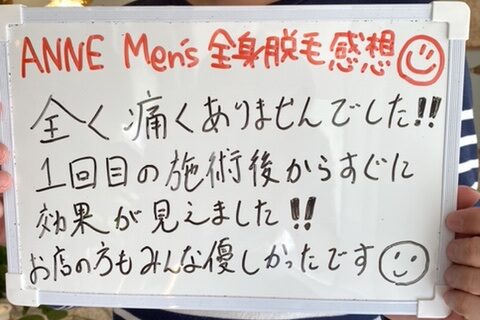 ANNE Men's 全身脱毛感想
全く痛くありませんでした!!
1回目の施術後からすぐに
効果が見えました!!
お店の方もみんな優しかったです